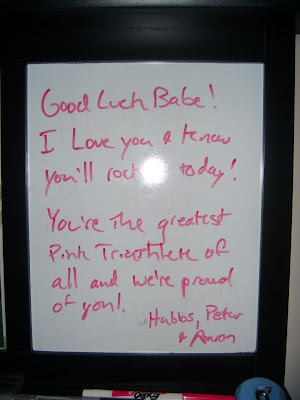 Good Luck Babe!
I Love you & know
you'll rock it today!
You're the greatest
Pink Triathlete of
all and we're proud
of you!
Hubbs, Peter
& Aaron